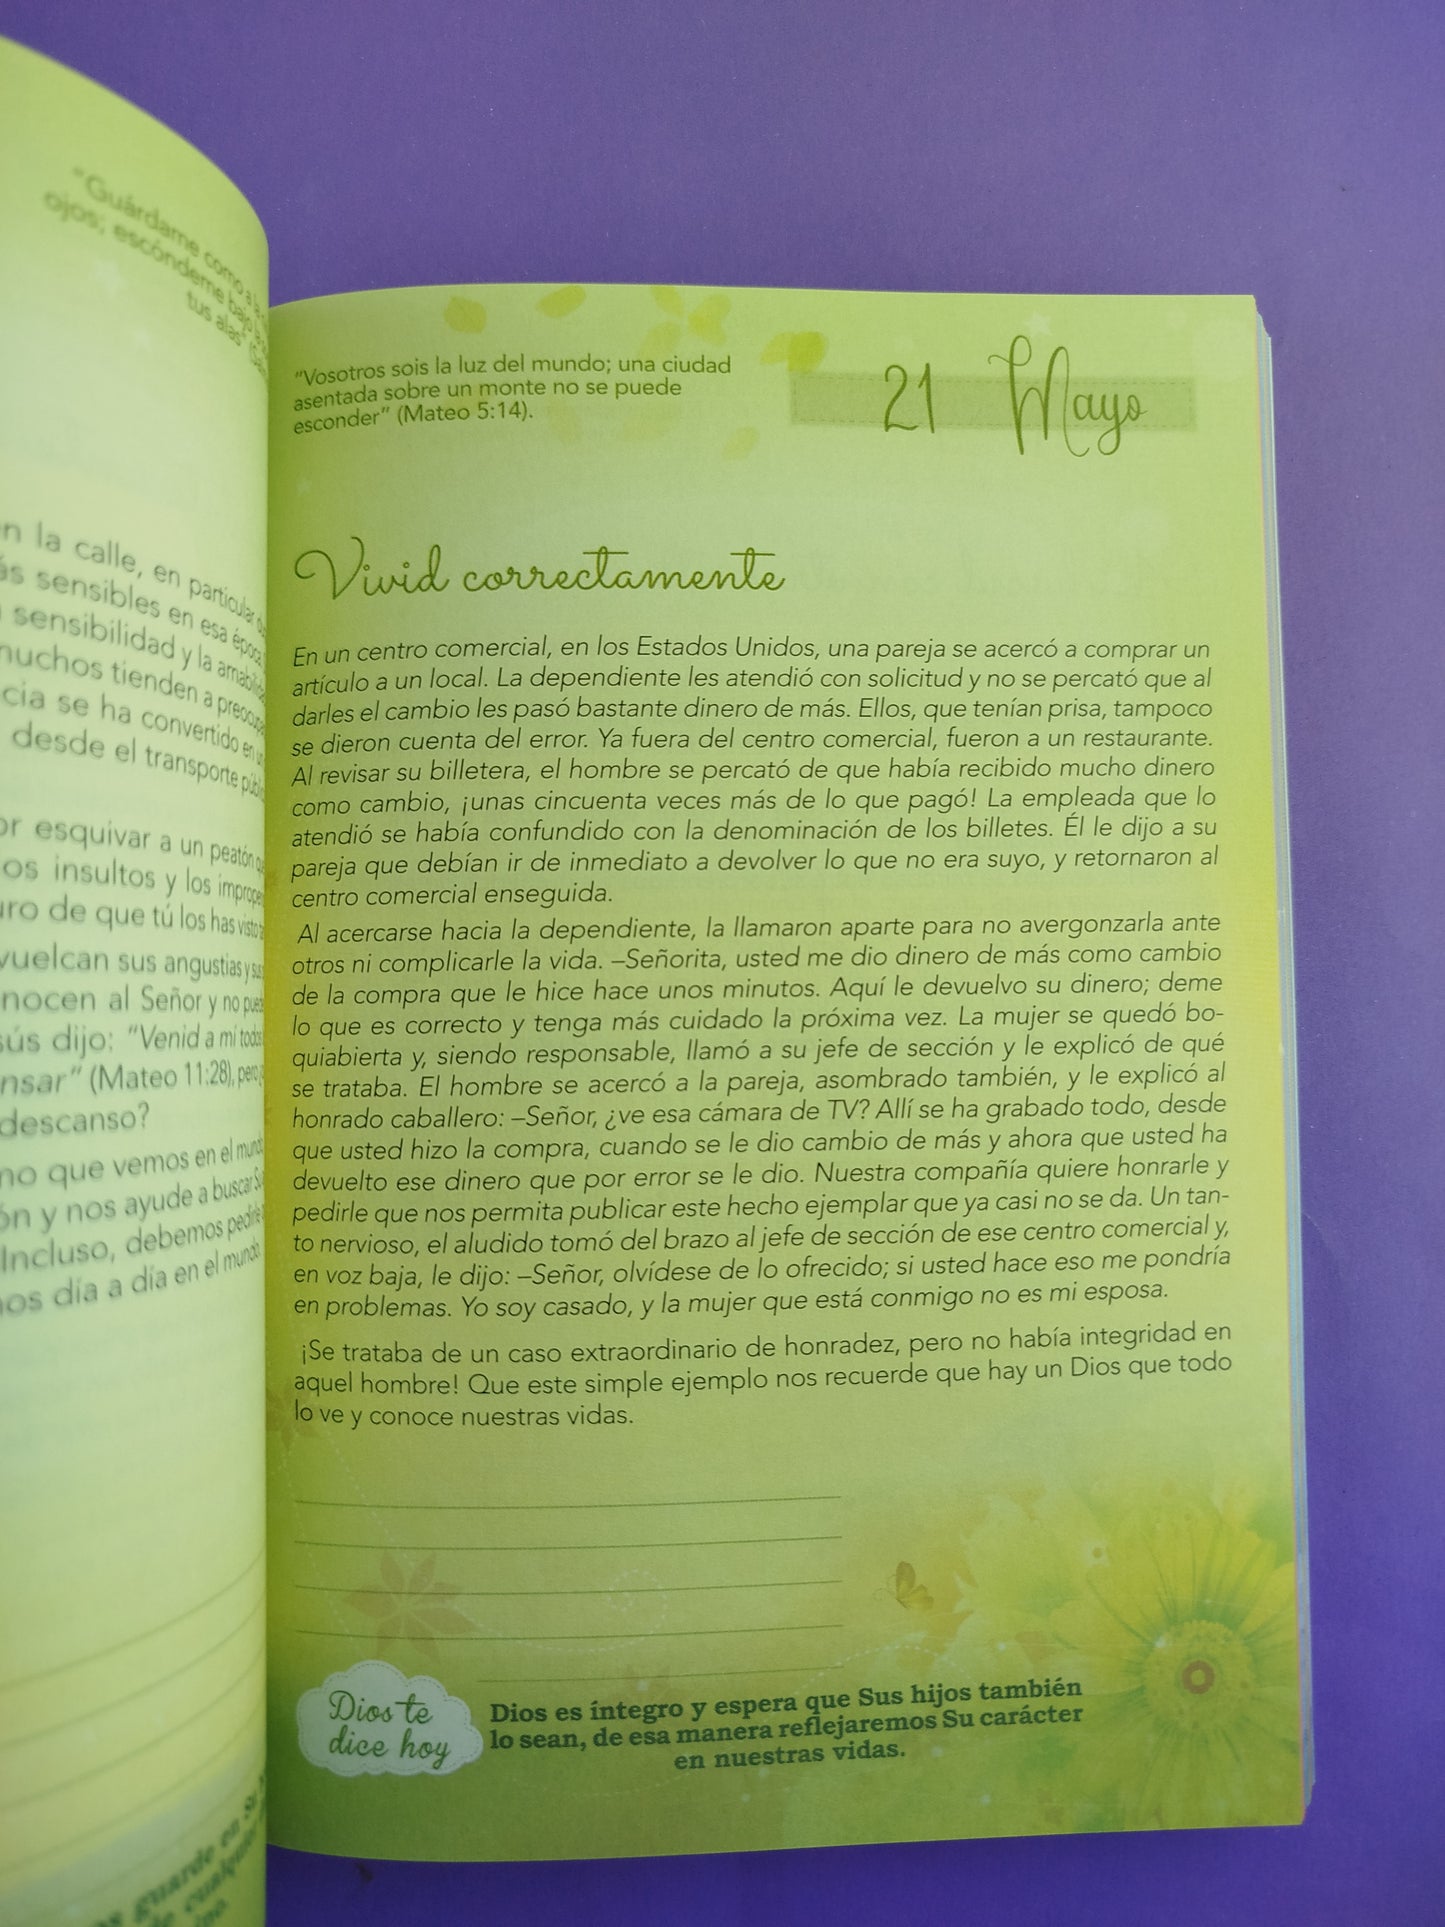 "Guárdame como a la
ojos; escóndeme bajo la
tus alas"
en la calle, en particular
ás sensibles en esa época
sensibilidad y la amabilidad
muchos tienden a
cia se ha convertido en un
desde el transporte
or esquivar a un peatón
os insultos y los
uro de que tú los has visto
vuelcan sus angustias y sus
nocen al Señor y no
sús dijo: "Venid a mí todos
nsar" (Mateo 11:28), pero
descanso?
no que vemos en el mundo
ón y nos ayude a buscar
Incluso, debemos pedirle
nos día a día en el mundo
guarde en
de cualquier
"Vosotros sois la luz del mundo; una ciudad
asentada sobre un monte no se puede
esconder" (Mateo 5:14).
21 Mayo
Vivid correctamente
En un centro comercial, en los Estados Unidos, una pareja se acercó a comprar un
artículo a un local. La dependiente les atendió con solicitud y no se percató que al
darles el cambio les pasó bastante dinero de más. Ellos, que tenían prisa, tampoco
se dieron cuenta del error. Ya fuera del centro comercial, fueron a un restaurante.
Al revisar su billetera, el hombre se percató de que había recibido mucho dinero
como cambio, ¡unas cincuenta veces más de lo que pagó! La empleada que lo
atendió se había confundido con la denominación de los billetes. Él le dijo a su
pareja que debían ir de inmediato a devolver lo que no era suyo, y retornaron al
centro comercial enseguida.
Al acercarse hacia la dependiente, la llamaron aparte para no avergonzarla ante
otros ni complicarle la vida. –Señorita, usted me dio dinero de más como cambio
de la compra que le hice hace unos minutos. Aquí le devuelvo su dinero; deme
lo que es correcto y tenga más cuidado la próxima vez. La mujer se quedó bo-
quiabierta y, siendo responsable, llamó a su jefe de sección y le explicó de qué
se trataba. El hombre se acercó a la pareja, asombrado también, y le explicó al
honrado caballero: –Señor, ¿ve esa cámara de TV? Allí se ha grabado todo, desde
que usted hizo la compra, cuando se le dio cambio de más y ahora que usted ha
devuelto ese dinero que por error se le dio. Nuestra compañía quiere honrarle y
pedirle que nos permita publicar este hecho ejemplar que ya casi no se da. Un tan-
to nervioso, el aludido tomó del brazo al jefe de sección de ese centro comercial y,
en voz baja, le dijo: –Señor, olvídese de lo ofrecido; si usted hace eso me pondría
en problemas. Yo soy casado, y la mujer que está conmigo no es mi esposa.
¡Se trataba de un caso extraordinario de honradez, pero no había integridad en
aquel hombre! Que este simple ejemplo nos recuerde que hay un Dios que todo
lo ve y conoce nuestras vidas.
Dios te
dice hoy
Dios es íntegro y espera que Sus hijos también
lo sean, de esa manera reflejaremos Su carácter
en nuestras vidas.